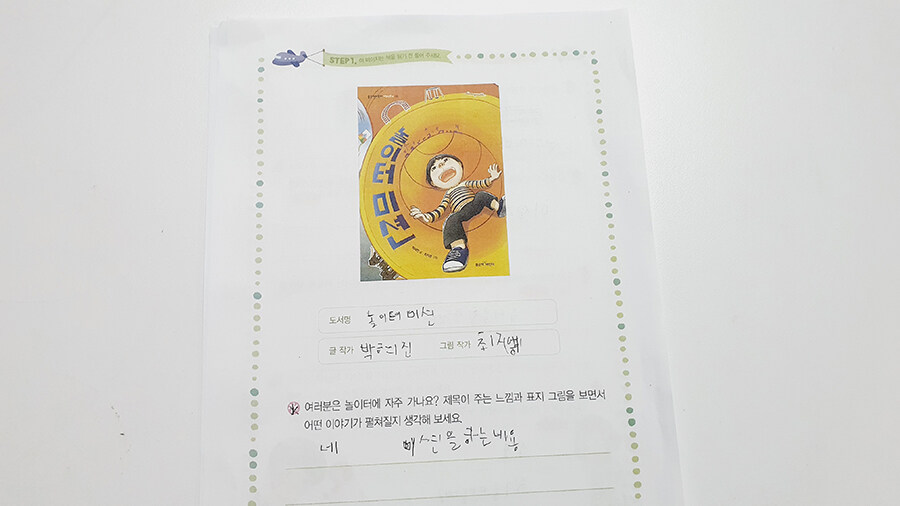 STEP 1.
놀이터 미션
도서명 놀이터 미션
글 작가 박현진 그림 작가
여러분은 놀이터에 자주 가나요? 제목이 주는 느낌과 표지 그림을 보면서
어떤 이야기가 펼쳐질지 생각해 보세요.
네 미션을 하는내용